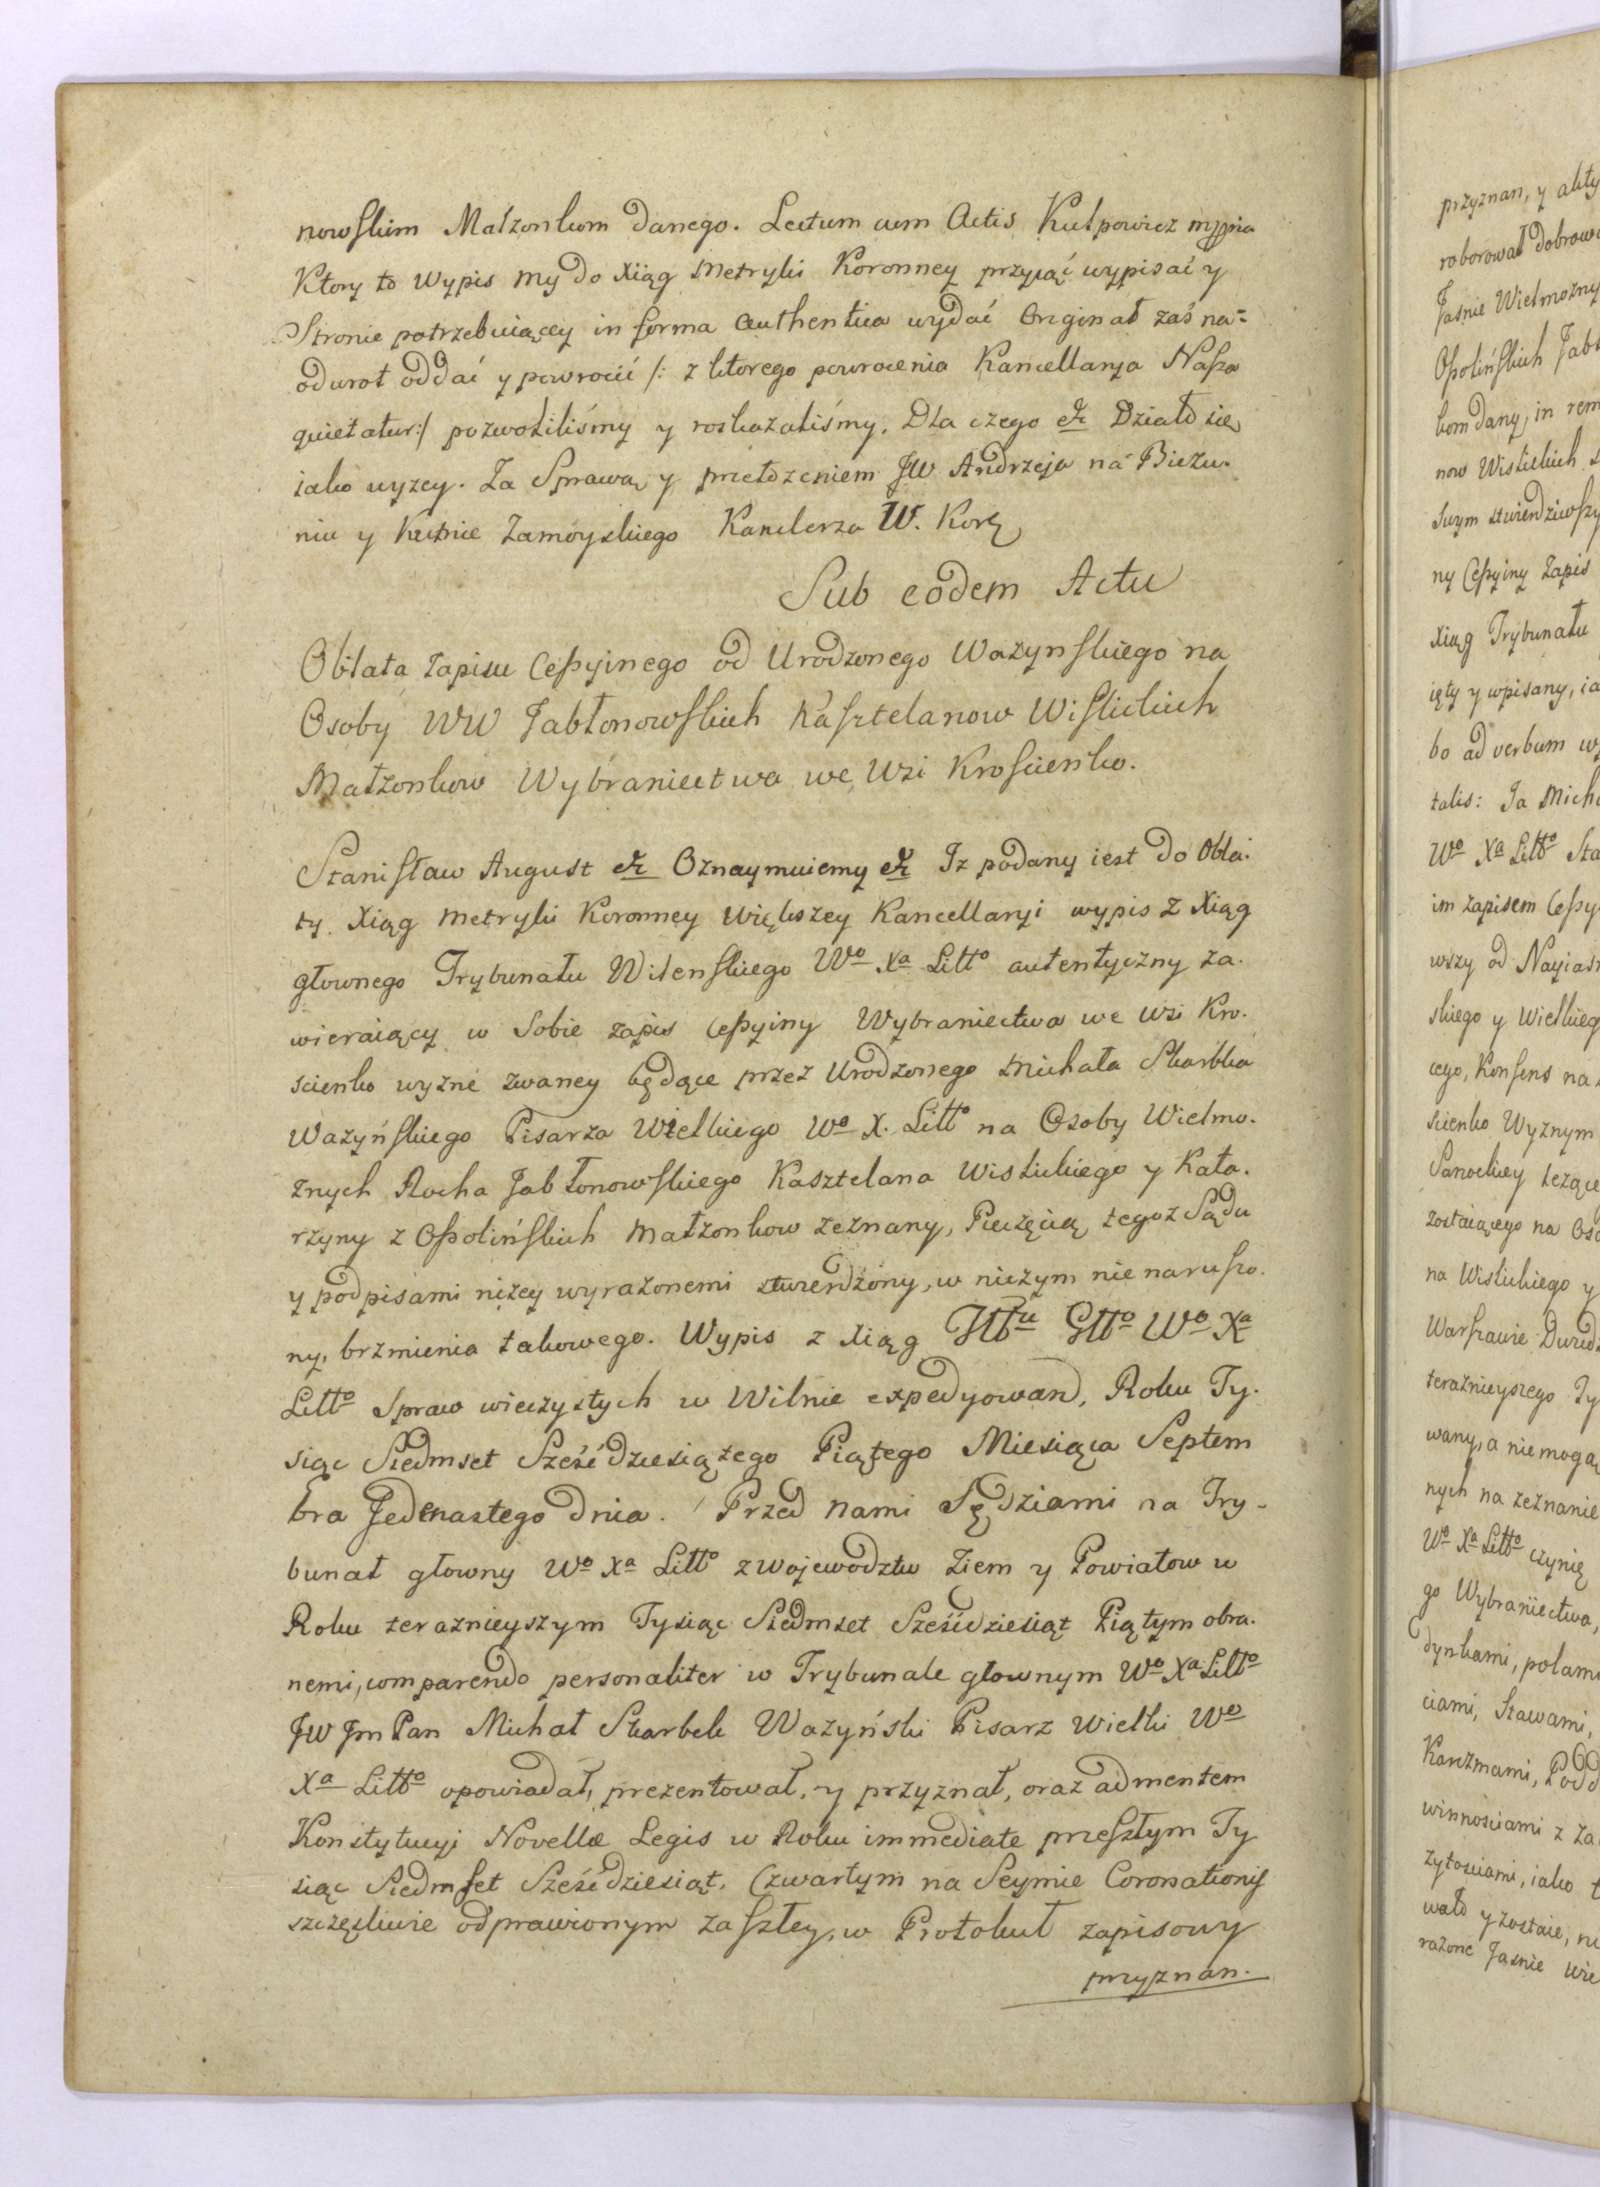 nowskim Małzonkom danego. Lectum cum Actis Kulpowicz mppria
Ktory to Wypis my do Xiąg Metryki Koronney przyiąć wypisać y
Stronie potrzebuiącey in forma authentica wydać Originał zaś na-
odwrot oddać y powrocić /: z ktorego powrocenia Kancellarya Nasza
quietatur:/ pozwoliliśmy y roskazaliśmy. Dla czego &c Działo się
iako wyzey. Za Sprawą y przełozeniem JW Andrzeja na Biezu-
niu y Kutnie Zamoyskiego Kanclerza W. Kor
Sub eodem Actu
Oblata zapisu Cessyinego od Urodzonego Wazynskiego na
Osoby WW Jabłonowskich Kasztelanow Wislickich
Małzonkow Wybraniectwa we Wsi Kroscienko.
Stanisław August &c Oznaymuiemy &c Iz podany iest do Obla-
ty Xiąg Metryki Koronney Większey Kancellaryi wypis z Xiąg
głownego Trybunału Wilenskiego Wo Xa Litto autentyczny za-
wieraiący w Sobie zapis Cessyiny Wybraniectwa we Wsi Kro-
scienko wyzne zwaney będące przez Urodzonego Michała Skarbka
Wazyńskiego Pisarza Wielkiego Wo X. Litto na Osoby Wielmo-
znych Rocha Jabłonowskiego Kasztelana Wislickiego y Kata-
rzyny z Ossolińskich Małzonkow zeznany, Pieczęcią tegoz Sądu
y podpisami nizey wyrazonemi stwierdzony, w niczym nie narusz-
ny, brzmienia takowego. Wypis z Xiąg Głło Wo Xa
Litto Spraw wieczystych w Wilnie expedyowan, Roku Ty-
siąc Siedmset Sześćdziesiątego Piątego Miesiąca Septem
bra Jedenastego dnia. Przed nami Sędziami na Try-
bunał głowny Wo Xa Litto z Wojewodztw Ziem y Powiatow w
Roku teraznieyszym Tysiąc Siedmset Sześcdziesiąt Piątym obra-
nemi, comparendo personaliter w Trybunale głownym Wo Xa Litto
JW Jm Pan Michał Skarbek Wazyński Pisarz Wielki Wo
Xa Litto opowiadał, prezentował, y przyznał, oraz ad mentem
Konstytucyi Novellæ Legis w Roku immediate przeszłym Ty
siąc Siedmset Sześćdziesiąt Czwartym na Seymie Coronationis
szczęsliwie odprawionym zaszłey, w Protokuł zapisowy
przyznan.
przyznan, y akty
roborował dobrow
Jaśnie Wielmozny
Ossolińskich Jabł
kom dany, in rem
now Wislickich
Swym stwierdziwszy
ny Cessyiny Zapis
Xiąg Trybunału
ięty y wpisany, ia
bo ad verbum w
talis: Ja Mich
Wo Xa Litto Sta
im zapisem Cessy
wszy od Nayiaś
skiego y Wielkieg
cego, Konsens na
scienko Wyznym
Sanockiey lezące
zostaiącego na Oso
na Wislickiego y
Warszawie
teraznieyszego Ty
wany, a niemogą
nych na zeznanie
Wo Xa Litto czynię
go Wybraniectwa,
dynkami, polami
ciami, Stawami,
Karczmami, Podd
winnosciami z
zytosciami, iako t
wało y zostaie,
razone Jasnie Wie